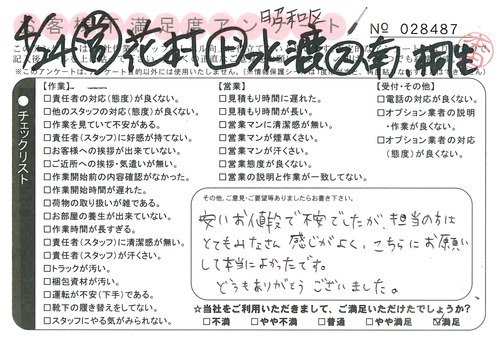 昭和区
お客様不満足度アンケート
№ 028487
4/24
※このアンケートは、アンケート目的以外には使用いたしません。
●チェックリスト
【作業】
□責任者の対応(態度)が良くない。
□他のスタッフの対応(態度)が良くない。
□作業を見ていて不安がある。
□責任者(スタッフ)に好感が持てない。
□お客様への挨拶が出来ていない。
□ご近所への挨拶・気遣いが無い。
□作業開始前の内容確認がなかった。
□作業開始時間が遅れた。
□荷物の取り扱いが雑である。
□お部屋の養生が出来ていない。
□作業時間が長すぎる。
□責任者(スタッフ)に清潔感が無い。
□責任者(スタッフ)が汗くさい。
□トラックが汚い。
□梱包資材が汚い。
□運転が不安(下手)である。
□靴下の履き替えをしてない。
□スタッフにやる気がみられない。
【営業】
□見積もり時間に遅れた。
□見積もり時間が長い。
□営業マンに清潔感が無い。
□営業マンが煙草くさい。
□営業マンが汗くさい。
□営業態度が良くない。
□営業の説明と作業が一致してない。
【受付・その他】
□電話の対応が良くない。
□オプション業者の説明
・作業が良くない。
□オプション業者の対応
(態度)が良くない。
その他、ご意見・ご要望等ありましたらお書き下さい。
安いお値段で不安でしたが、担当の方は
とてもみなさん 感じがよく、こちらにお願い
して本当によかったです。
どうもありがとうございました。
☆当社をご利用いただきまして、ご満足いただけたでしょうか?
□不満 □やや不満 □普通 □やや満足 ☑満足